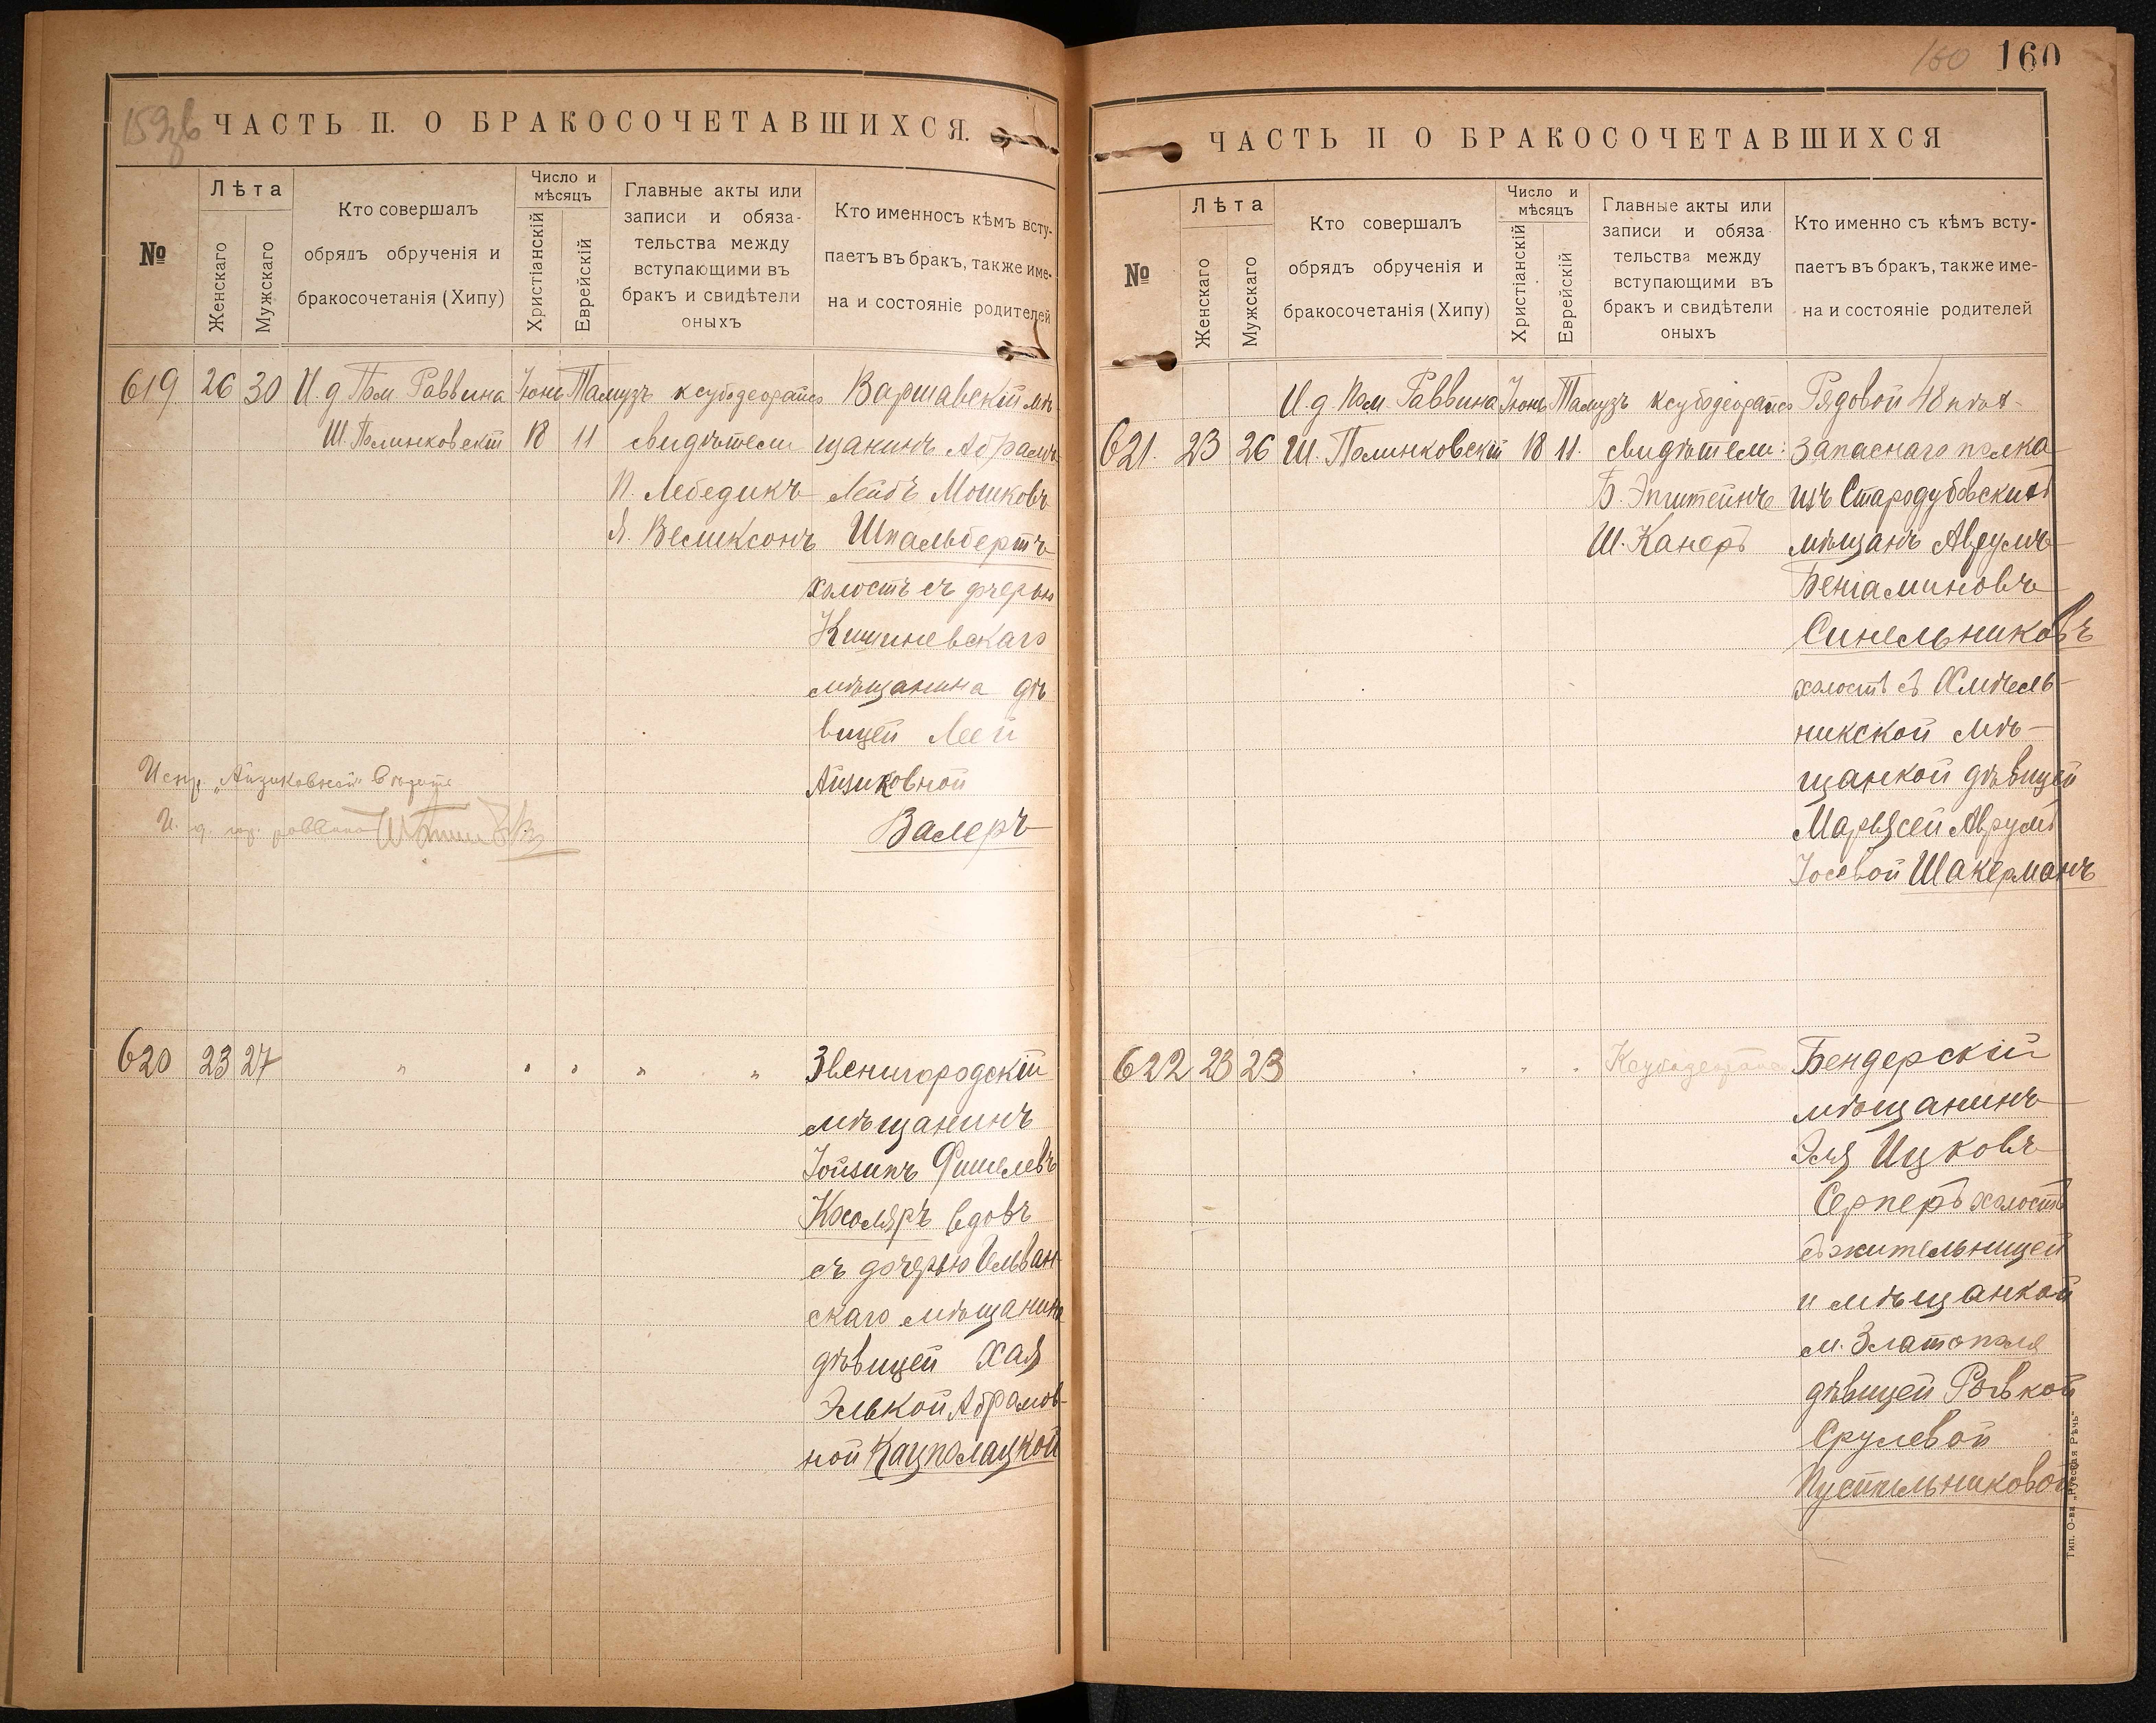 159об
ЧАСТЬ II. О БРАКОСОЧЕТАВШИХСЯ.
№
Лѣта
Женскаго
Мужскаго
Кто совершалъ
обрядъ обрученія и
бракосочетанія (Хипу)
Число и
мѣсяцъ
Христіанскій
Еврейскій
Главные акты или
записи и обяза-
тельства между
вступающими въ
бракъ и свидѣтели
оныхъ
Кто именносъ кѣмъ всту-
паетъ въ бракъ, также име-
на и состояніе родителей
619 26 30 И. д. Пом. Раввина Іюнь Тамузъ ксубодеорайсо Варшавскій мѣ-
Ш. Полинковскій 18 11 свидѣтели щанинъ Абрамъ
П. Лебедикъ Лейбъ Мошковъ
Я. Веліксонъ Шпальбертъ
холостъ съ дочерью
Кишиневскаго
мѣщанина дѣ
вицей Леей
Испр. „Айзиковной" вѣрьте Айзиковной
И. д. пом. раввина Валеръ
620 23 27 " " " " " Звенигородскій
мѣщанинъ
Іойзипъ Фишелевъ
Косоляръ вдовъ
съ дочерью Ильван-
скаго мѣщанина
дѣвицей Хая
Элькой Абрамов-
ной Кацполацкой
160 160
ЧАСТЬ II О БРАКОСОЧЕТАВШИХСЯ
№
Лѣта
Женскаго
Мужскаго
Кто совершалъ
обрядъ обрученія и
бракосочетанія (Хипу)
Число и
мѣсяцъ
Христіанскій
Еврейскій
Главные акты или
записи и обяза
тельства между
вступающими въ
бракъ и свидѣтели
оныхъ
Кто именно съ кѣмъ всту-
паетъ въ бракъ, также име-
на и состояніе родителей
И. д. Пом. Раввина Іюнь Тамузъ ксубодеорайсо Рядовой 48 пѣх-
621. 23 26 Ш. Полинковскій 18 11. свидѣтели: запаснаго полка
Б. Эпштейнъ изъ Стародубовскихъ
Ш. Канеръ мѣщанъ Аврумъ
Беніаминовъ
Синельниковъ
холостъ съ Хмѣль-
никской мѣ-
щанкой дѣвицей
Марьясей Аврумъ
Іосевой Шакерманъ
622 23 23 " " " Ксубодеорайсо Бендерскій
мѣщанинъ
Эля Ицковъ
Серперъ холостъ
съ жительницей
и мѣщанкой
м. Златополя
дѣвицей Ровкой
Срулевой
Пустильниковой
Тип. О-ва „Русская Рѣчь"